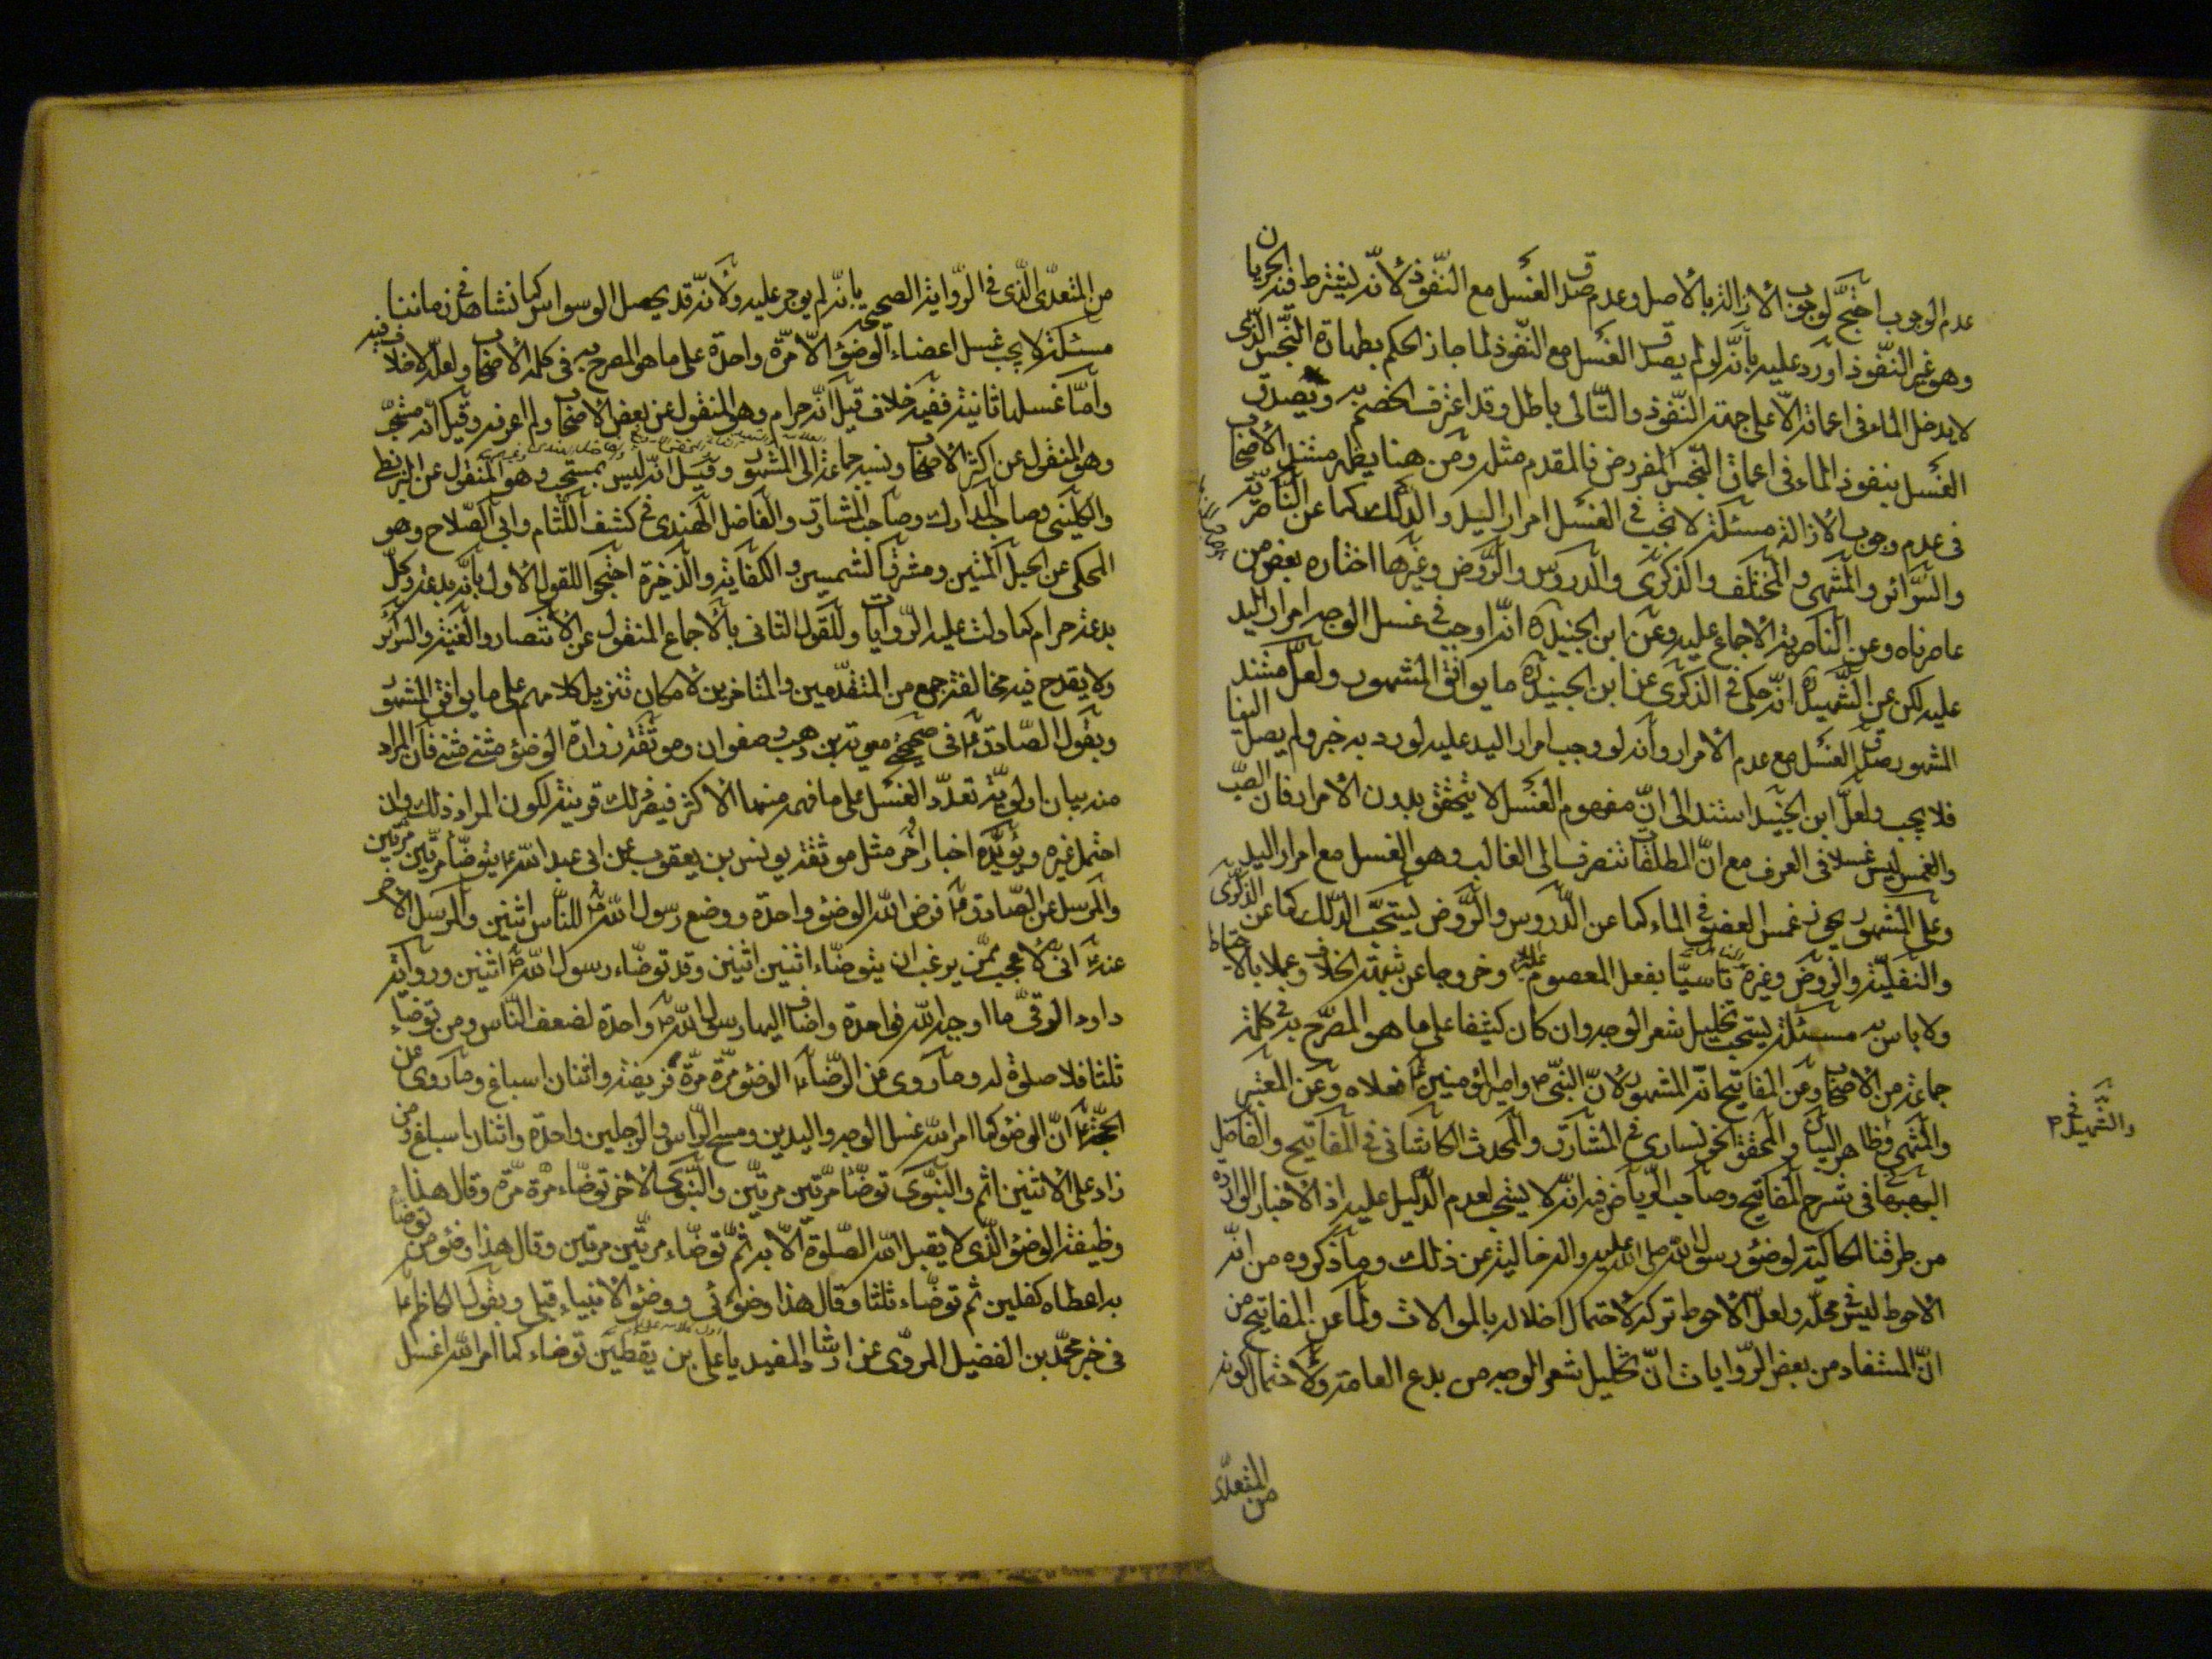 عدم الوجوب احتج لوجوب الازالة بالاصل وعدم صدق الغسل مع النفوذ لانه يشترط فيه الجريان
وهو غير النفوذ اورد عليه بانه لو لم يصدق الغسل مع النفوذ لما جاز الحكم بطهارة النجس الذى
لا يدخل الماء فى اعماقه الا على جهة النفوذ والتالى باطل وقد اعترف الخصم به ويصدق
الغسل بنفوذ الماء فى اعماق النجس المفروض فالمقدم مثله ومن هنا يظهر مستند الاصحاب
فى عدم وجوب الازالة مسئلة لا يجب فى الغسل امرار اليد والدلك كما عن الناصرية
والسرائر والمنتهى والمختلف والذكرى والدروس والروض وغيرها اختاره بعض من
عاصرناه وعن الناصرية الاجماع عليه وعن ابن الجنيد ره انه اوجب فى غسل الوجه امرار اليد
عليه لكن عن الشهيد ره انه حكى فى الذكرى عن ابن الجنيد ره ما يوافق المشهور ولعل مستند
المشهور صدق الغسل مع عدم الامرار وانه لو وجب امرار اليد عليه لورد به خبر ولم يصل الينا
فلا يجب ولعل ابن الجنيد استند الى ان مفهوم الغسل لا يتحقق بدون الامرار فان الصب
والغمس ليس غسلا فى العرف مع ان المطلقات تنصرف الى الغالب وهو الغسل مع امرار اليد
وعلى المشهور يجوز غمس العضو فى الماء كما عن الدروس والروض ليستحب الدلك كما عن الذكرى
والنفلية والروض وغيره تاسيا بفعل المعصوم عليه السلم وخروجا عن شبهة الخلاف وعملا بالاحتياط
ولا باس به مسئلة يستحب تخليل شعر الوجه وان كان كثيفا على ما هو المصرح به فى كلمة
جماعة من الاصحاب وعن المفاتيح انه المشهور لان النبى ص وامير المؤمنين ع فعلاه وعن المعتبر
والمنتهى وظاهر البيان والمحقق الخونسارى فى المشارق والمحدث الكاشانى فى المفاتيح والفاضل
البهبهانى فى شرح المفاتيح وصاحب الرياض فيه انه لا يستحب لعدم الدليل عليه اذ الاخبار الواردة
من طرقنا الحاكية لوضوء رسول الله صلى الله عليه واله خالية عن ذلك وما ذكروه من انه
الاحوط ليس فى محله ولعل الاحوط تركه لاحتمال اخلاله بالموالات ولما عن المفاتيح من
ان المستفاد من بعض الروايات ان تخليل شعر الوجه من بدع العامة ولاحتمال كونه
من المتعدى
والشهيد فى
من المتعدى الذى فى الرواية الصحيحة بانه لم يوجر عليه ولانه قد يحصل الوسواس كما نشاهد فى زماننا
مسئلة لا يجب غسل اعضاء الوضوء الا مرة واحدة على ما هو المصرح به فى كلمة الاصحاب ولعله لا خلاف فيه
واما غسلها ثانية ففيه خلاف قيل انه حرام وهو المنقول عن بعض الاصحاب ولم اعرفه وقيل انه مستحب
وهو المنقول عن اكثر الاصحاب ونسبه جماعة الى المشهور وقيل انه ليس بمستحب وهو المنقول عن البزنطى
والكلينى وصاحب المدارك وصاحب المشارق والفاضل الهندى فى كشف اللثام وابى الصلاح وهو
المحكى عن الحبل المتين ومشرق الشمسين والكفاية والذخيرة احتجوا للقول الاول بانه بدعة وكل
بدعة حرام كما دلت عليه الروايات وللقول الثانى بالاجماع المنقول عن الانتصار والغنية والسرائر
ولا يقدح فيه مخالفة جمع من المتقدمين والمتاخرين لامكان تنزيل كلامهم على ما يوافق المشهور
وبقول الصادق ع فى صحيحة معوية بن وهب وصفوان وموثقة زرارة الوضوء مثنى مثنى فان المراد
منه بيان اولوية تعدد الغسل على ما فهمه منهما الاكثر فيصير ذلك قرينة لكون المراد ذلك وان
احتمل غيره ويؤيده اخبار اخر مثل موثقة يونس بن يعقوب عن ابى عبد الله ع يتوضا مرتين مرتين
والمرسل عن الصادق ع فرض الله الوضوء واحدة ووضع رسول الله ص للناس اثنتين والمرسل الاخر
عنه ع انى لاعجب ممن يرغب ان يتوضاء اثنين اثنين وقد توضاء رسول الله ص اثنين اثنين ورواية
داود الرقى ما اوجبه الله فواحدة واضاف اليها رسول الله ص واحدة لضعف الناس ومن توضاء
ثلثا فلا صلوة له وما روى عن الرضا ع الوضوء مرة مرة فريضة واثنتان اسباغ وما روى عن
الحجة ع ان الوضوء كما امر الله غسل الوجه واليدين ومسح الراس والرجلين واحدة واثنان اسباغ ومن
زاد على الاثنين اثم والنبوى توضا مرتين مرتين والنبوى الاخر توضاء مرة مرة وقال هذا
وظيفة الوضوء الذى لا يقبل الله الصلوة الا به ثم توضاء مرتين مرتين وقال هذا وضوء من توضا
به اعطاه كفلين ثم توضاء ثلثا وقال هذا وضوئى ووضوء الانبياء قبلى وبقول الكاظم ع
فى خبر محمد بن الفضيل المروى عن ارشاد المفيد يا على بن يقطين توضاء كما امر الله اغسل